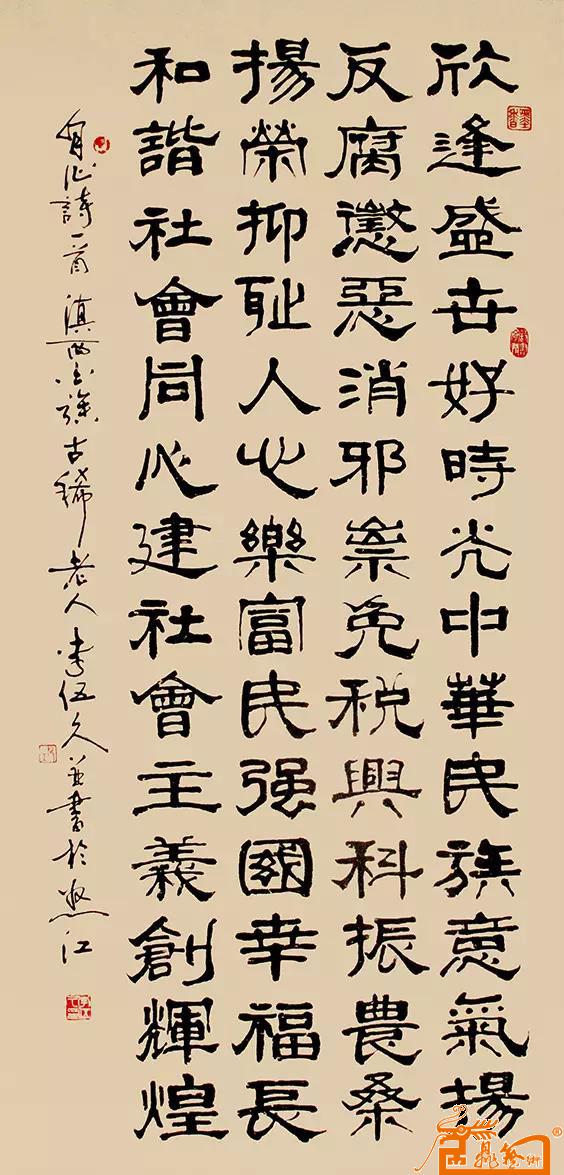 欣逢盛世好時光中華民族意氣揚
反腐懲惡消邪祟免税興科振農桑
揚榮抑耻人心樂富民强國幸福長
和諧社會同心建社會主義創輝煌
詩一首滇西古稀老人李伍久並書於怒江